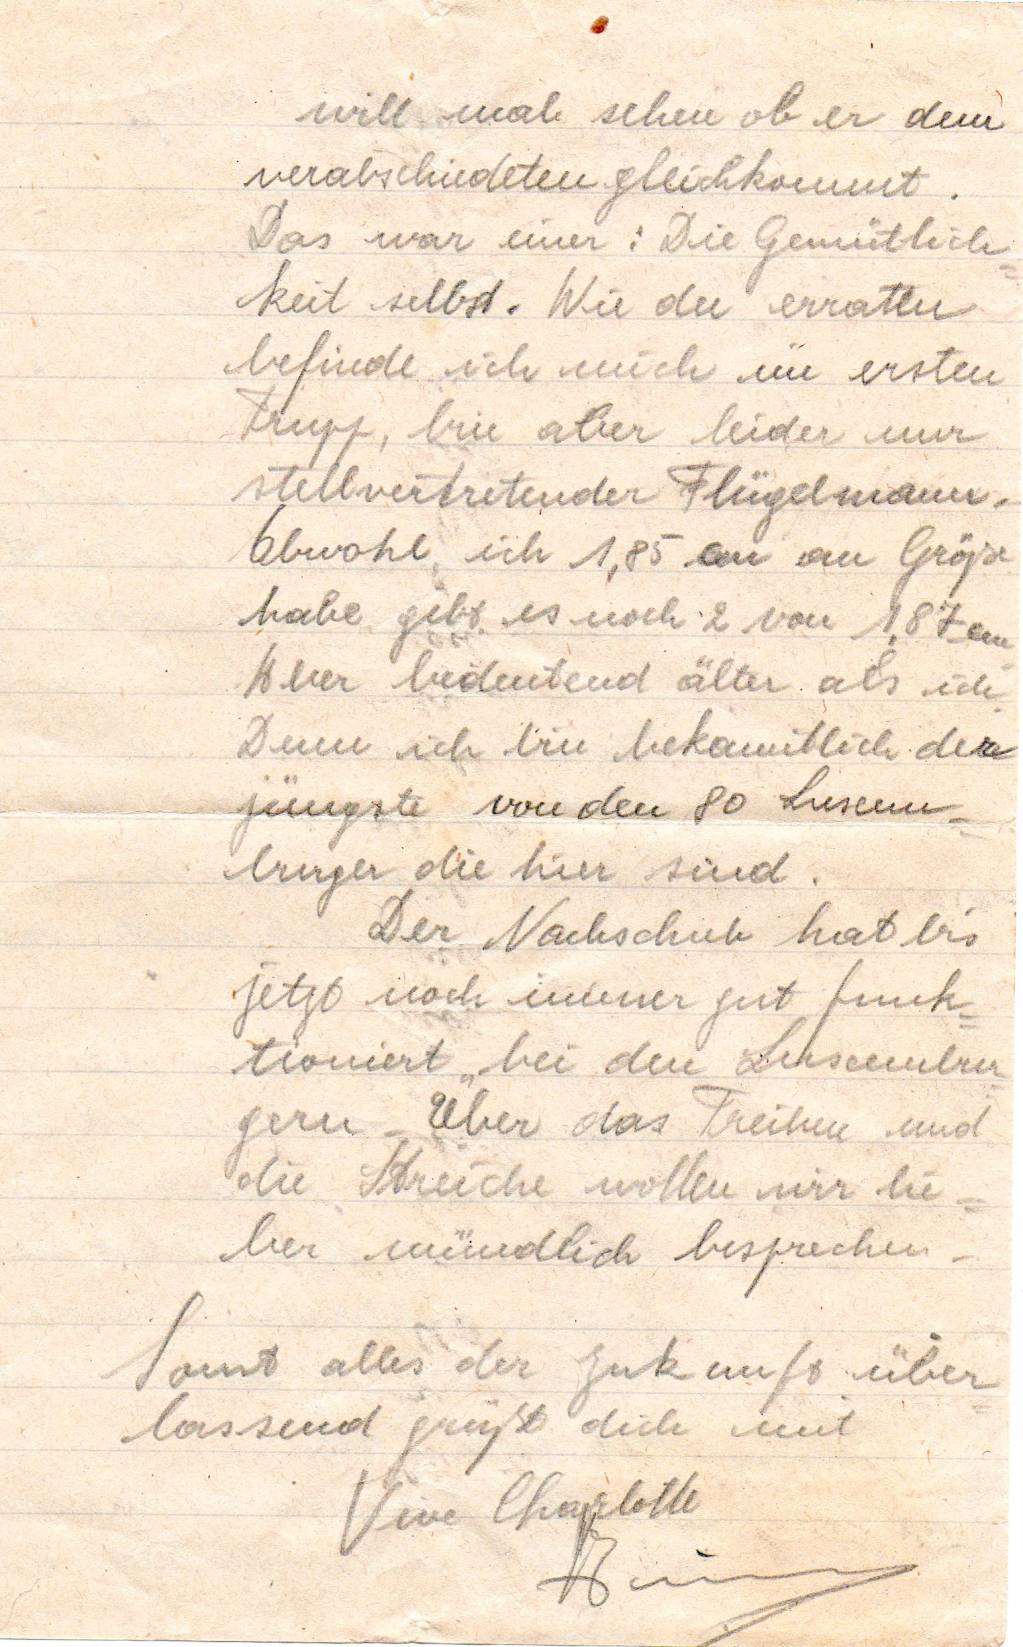 will mal sehen ob er dem
verabschiedeten gleichkommt.
Das war einer: Die Gemütlich=
keit selbst. Wie du erraten
befinde ich mich im ersten
Trupp, bin aber leider nur
stellvertretender Flügelmann.
Obwohl ich 1,85 cm an Größe
habe gibt es noch 2 von 1,87 cm
Aber bedeutend älter als ich
Denn ich bin bekanntlich der
jüngste von den 80 Luxem=
burger die hier sind.
Der Nachschub hat bis
jetzt noch immer gut funk=
tioniert „bei den Luxembur
gern - Über das Treiben und
die Streiche wollen wir lie=
ber mündlich besprechen -
Somit alles der Zukunft über=
lassend grüßt dich mit
Vive Charlotte